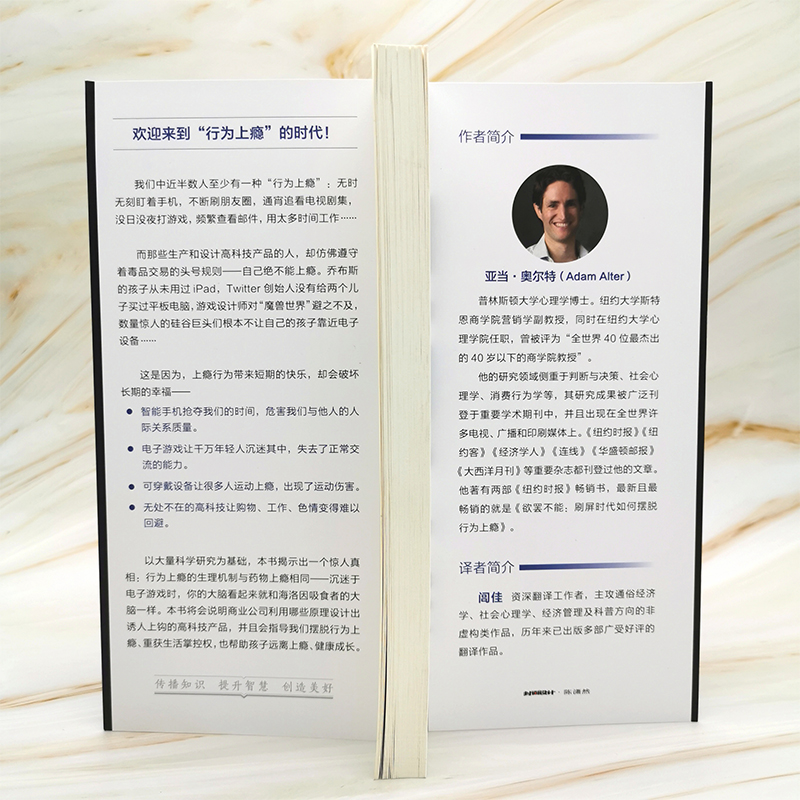 欢迎来到“行为上瘾”的时代！
我们中近半数人至少有一种“行为上瘾”：无时
无刻盯着手机，不断刷朋友圈，通宵追看电视剧集，
没日没夜打游戏，频繁查看邮件，用太多时间工作……
而那些生产和设计高科技产品的人，却仿佛遵守
着毒品交易的头号规则——自己绝不能上瘾。乔布斯
的孩子从未用过 iPad，Twitter 创始人没有给两个儿
子买过平板电脑，游戏设计师对“魔兽世界”避之不及，
数量惊人的硅谷巨头们根本不让自己的孩子靠近电子
设备……
这是因为，上瘾行为带来短期的快乐，却会破坏
长期的幸福——
● 智能手机抢夺我们的时间，危害我们与他人的人
际关系质量。
● 电子游戏让千万年轻人沉迷其中，失去了正常交
流的能力。
● 可穿戴设备让很多人运动上瘾，出现了运动伤害。
● 无处不在的高科技让购物、工作、色情变得难以
回避。
以大量科学研究为基础，本书揭示出一个惊人真
相：行为上瘾的生理机制与药物上瘾相同——沉迷于
电子游戏时，你的大脑看起来就和海洛因吸食者的大
脑一样。本书将会说明商业公司利用哪些原理设计出
诱人上钩的高科技产品，并且会指导我们摆脱行为上
瘾、重获生活掌控权，也帮助孩子远离上瘾、健康成长。
传播知识 提升智慧 创造美好
作者简介
亚当·奥尔特（Adam Alter）
普林斯顿大学心理学博士。纽约大学斯特
恩商学院营销学副教授，同时在纽约大学心
理学院任职，曾被评为“全世界 40 位最杰出
的 40 岁以下的商学院教授”。
他的研究领域侧重于判断与决策、社会心
理学、消费行为学等，其研究成果被广泛刊
登于重要学术期刊中，并且出现在全世界许
多电视、广播和印刷媒体上。《纽约时报》《纽
约客》《经济学人》《连线》《华盛顿邮报》
《大西洋月刊》等重要杂志都刊登过他的文章。
他著有两部《纽约时报》畅销书，最新且最
畅销的就是《欲罢不能：刷屏时代如何摆脱
行为上瘾》。
译者简介
闾佳 资深翻译工作者，主攻通俗经济
学、社会心理学、经济管理及科普方向的非
虚构类作品，历年来已出版多部广受好评的
翻译作品。
封面设计·陈潇然